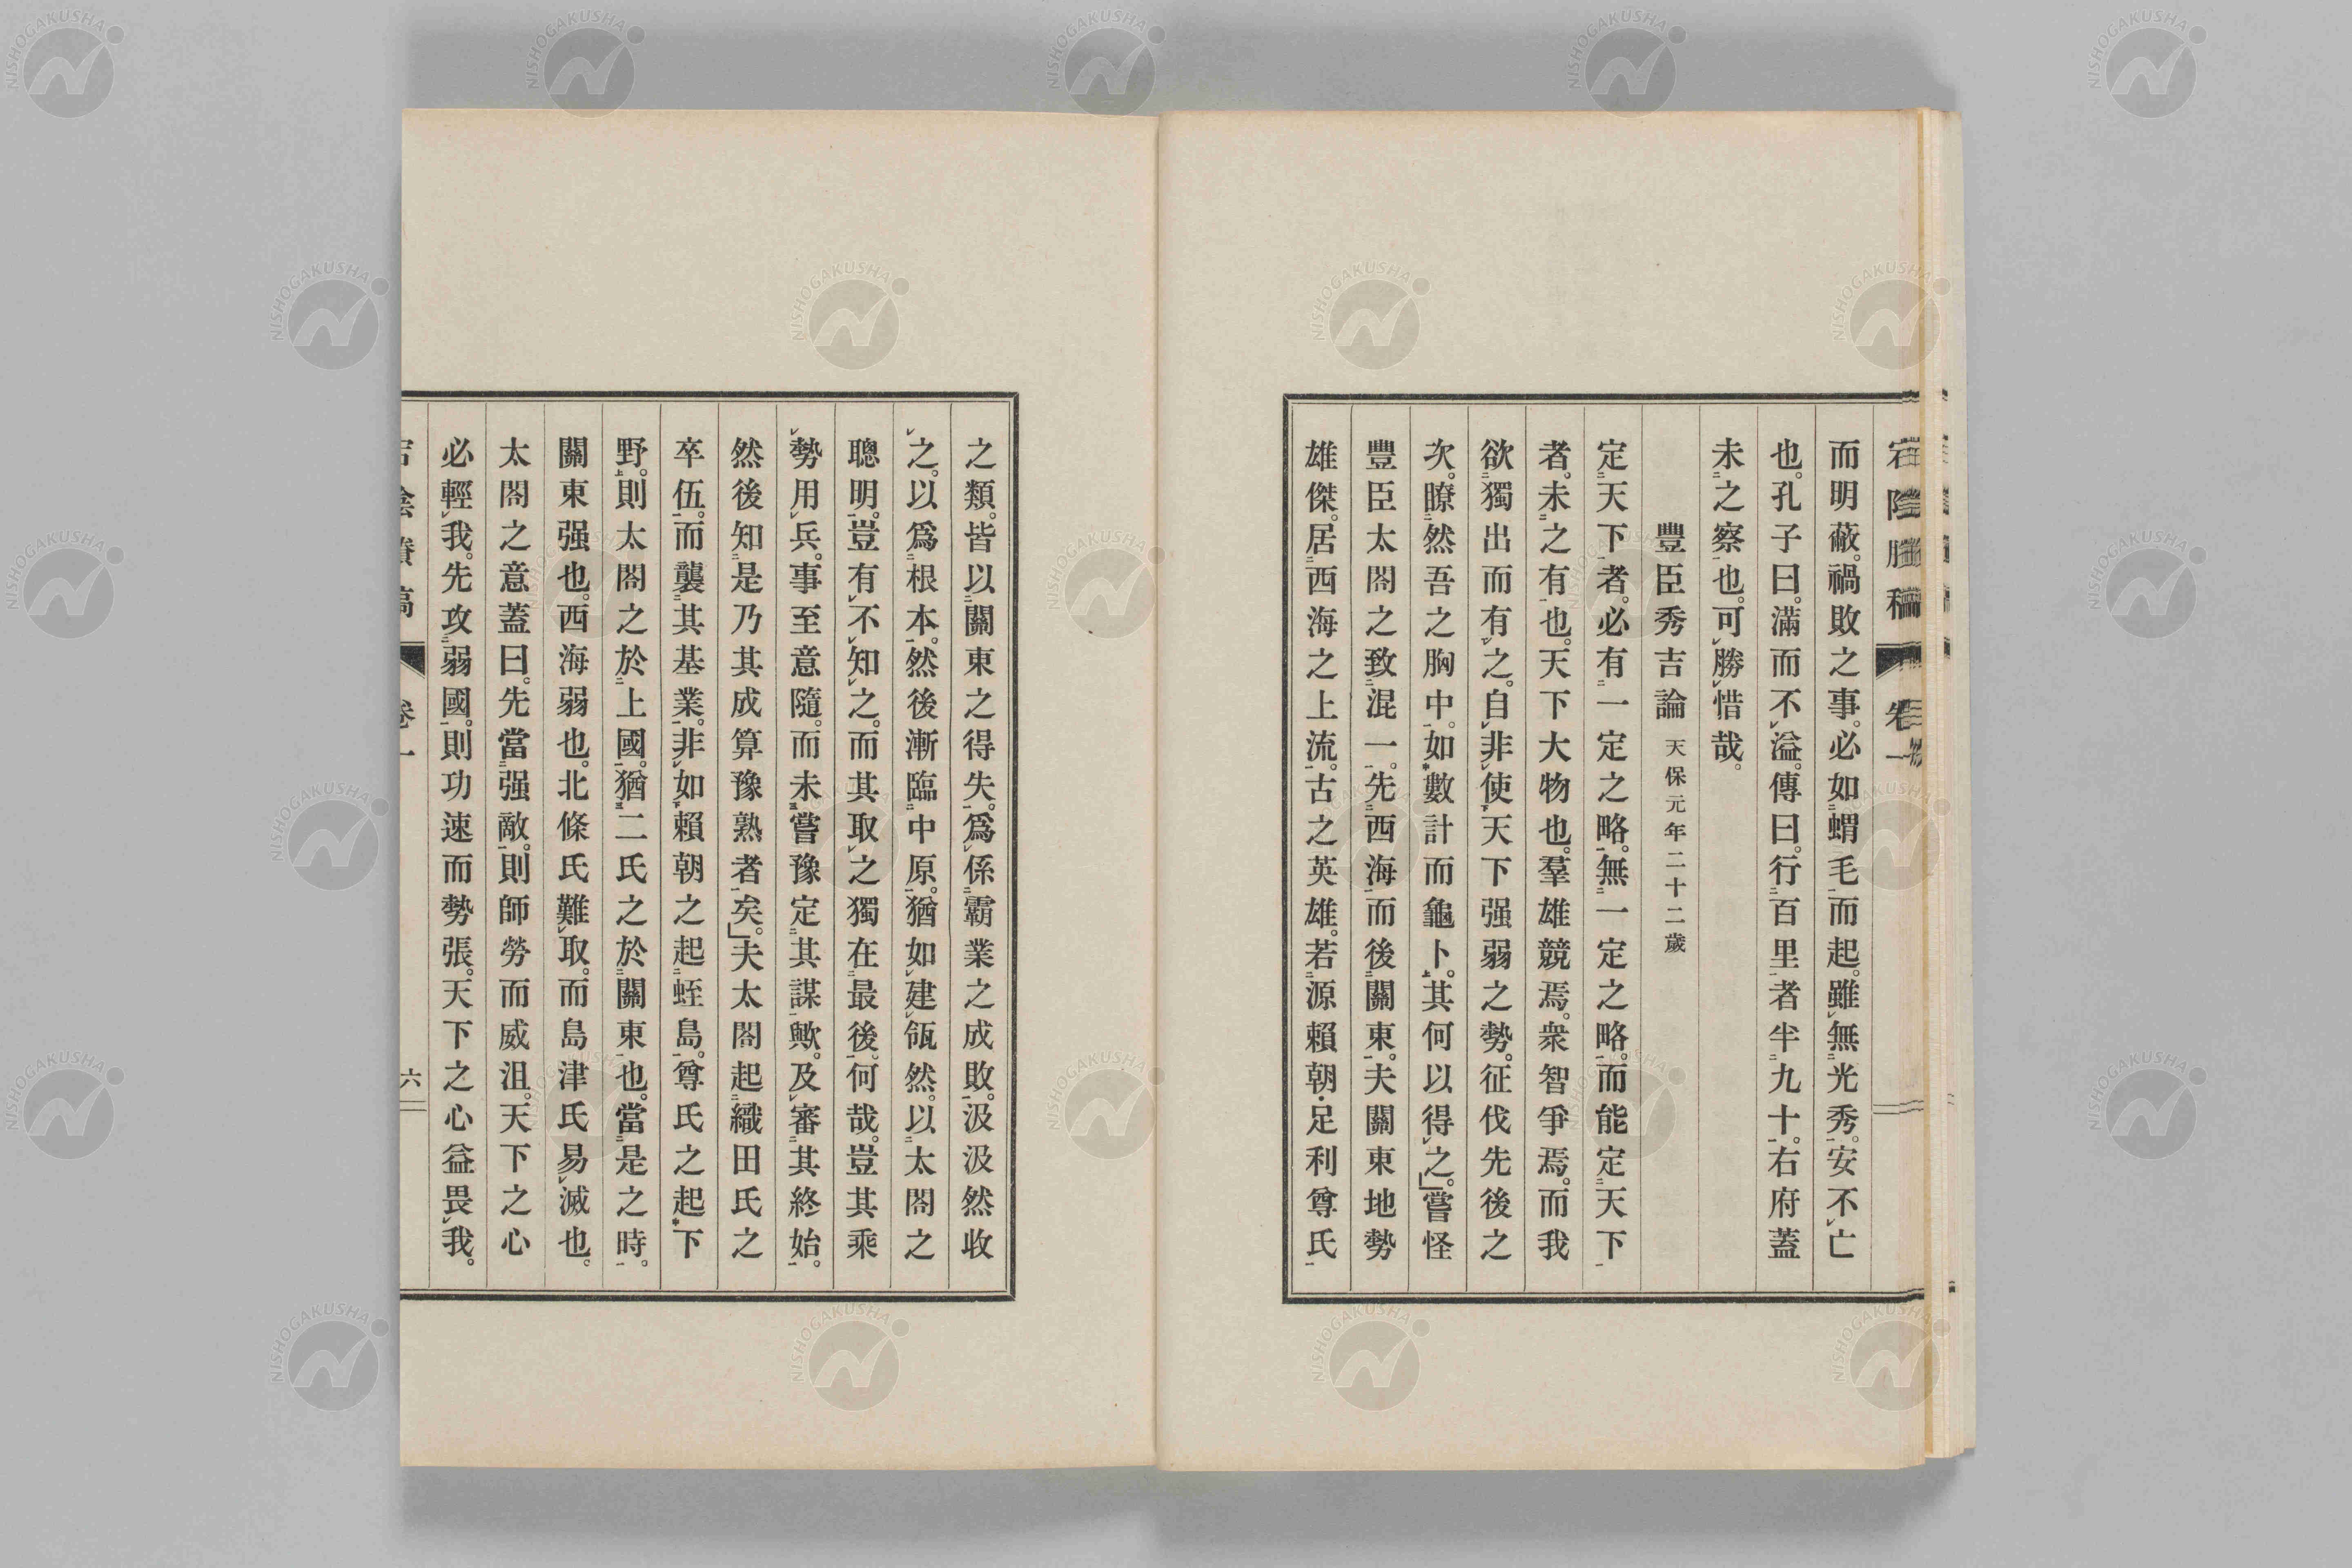 而明蔽。禍敗之事。必如蝟毛而起。雖無光秀。安不亡
也。孔子曰。滿而不溢。傳曰。行百里者半九十。右府蓋
未之察也。可勝惜哉。
豐臣秀吉論 天保元年二十二歲
定天下者。必有一定之略。無一定之略。而能定天下
者。未之有也。天下大物也。羣雄競焉。衆智爭焉。而我
欲獨出而有之。自非使天下强弱之勢。征伐先後之
次。瞭然吾之胸中。如數計而龜卜。其何以得之。」嘗怪
豐臣太閤之致混一。先西海而後關東。夫關東地勢
雄傑。居西海之上流。古之英雄。若源賴朝・足利尊氏
之類。皆以關東之得失。爲係霸業之成敗。汲汲然收
之。以爲根本。然後漸臨中原。猶如建瓴然。以太閤之
聰明。豈有不知之。而其取之獨在最後。何哉。豈其乘
勢用兵。事至意隨。而未嘗豫定其謀歟。及審其終始。
然後知是乃其成算豫熟者矣。」夫太閤起織田氏之
卒伍。而襲其基業。非如賴朝之起蛭島。尊氏之起下
野。則太閤之於上國。猶二氏之於關東也。當是之時。
關東强也。西海弱也。北條氏難取。而島津氏易滅也。
太閤之意蓋曰。先當强敵。則師勞而威沮。天下之心
必輕我。先攻弱國。則功速而勢張。天下之心益畏我。
宕陰賸稿 卷一 六
NISHOGAKUSHA